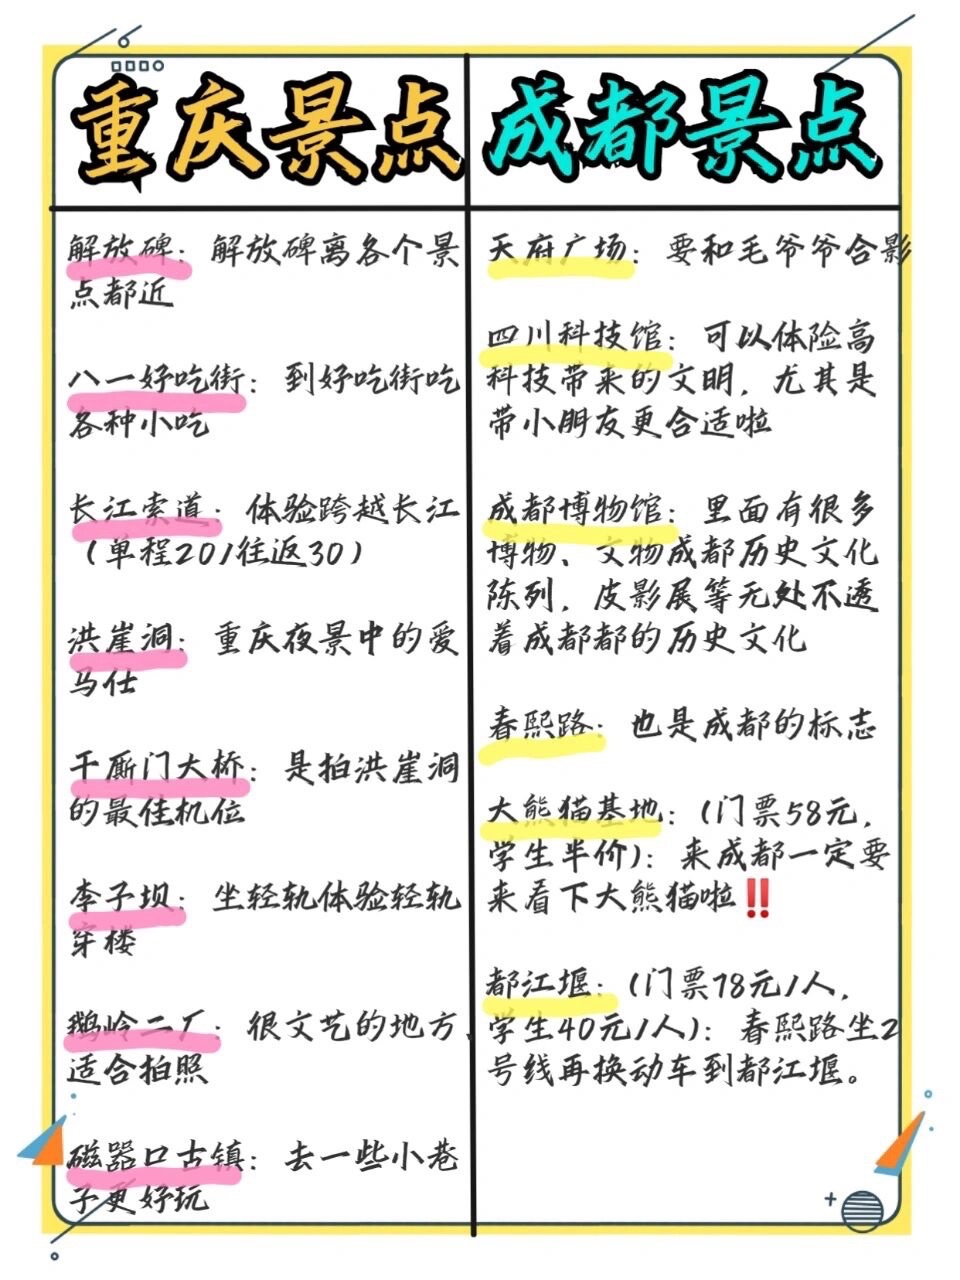 重庆景点
解放碑：解放碑离各个景
点都近
八一好吃街：到好吃街吃
各种小吃
长江索道：体验跨越长江
（单程20/往返30）
洪崖洞：重庆夜景中的爱
马仕
千厮门大桥：是拍洪崖洞
的最佳机位
李子坝：坐轻轨体验轻轨
穿楼
鹅岭二厂：很文艺的地方，
适合拍照
磁器口古镇：去一些小巷
子更好玩
成都景点
天府广场：要和毛爷爷合影
四川科技馆：可以体险高
科技带来的文明，尤其是
带小朋友更合适啦
成都博物馆：里面有很多
博物、文物成都历史文化
陈列，皮影展等无处不透
着成都都的历史文化
春熙路：也是成都的标志
大熊猫基地：(门票58元，
学生半价)：来成都一定要
来看下大熊猫啦‼️
都江堰：(门票78元/人，
学生40元/人)：春熙路坐2
号线再换动车到都江堰。